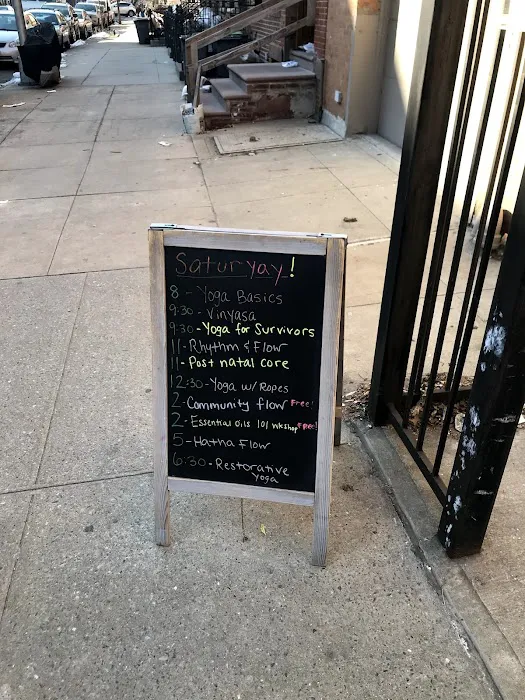 Saturyay!
8 - Yoga Basics
9:30 - Vinyasa
9:30 - Yoga for Survivors
11 - Rhythm & Flow
11 - Post natal core
12:30 - Yoga w/ Ropes
2 - Community flow Free!
2 - Essential Oils 101 wkshop Free!
5 - Hatha Flow
6:30 - Restorative
Yoga